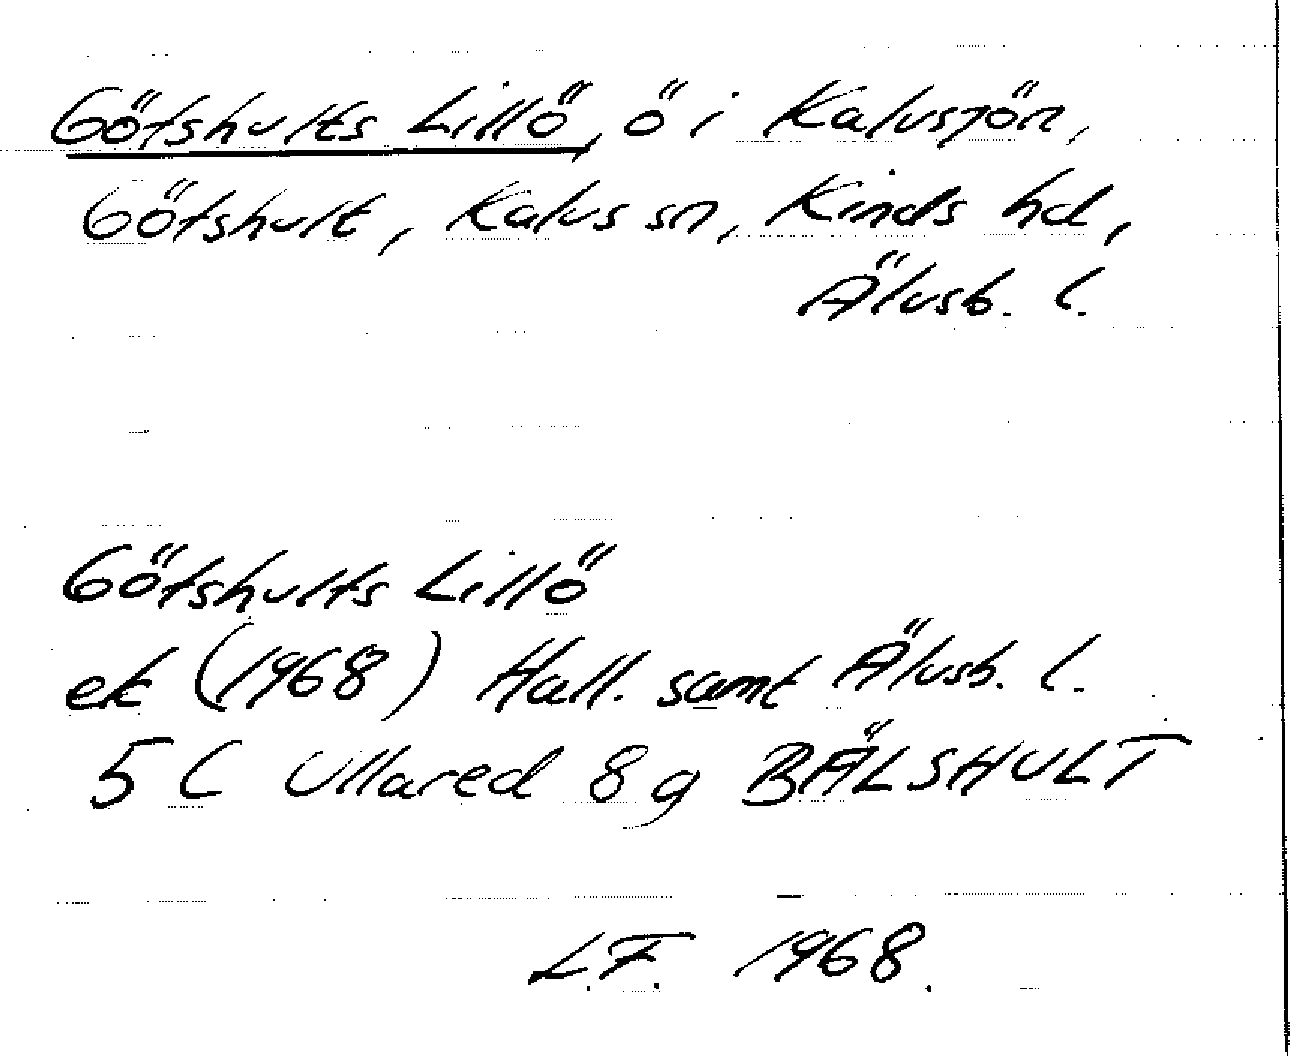 Götshults Lillö, ö i Kalvsjön,
Götshult, Kalvs sn, Kinds hd,
Älvsb. l.
Götshults Lillö
ek (1968) Hall. samt Älvsb. l.
5 C Ullared 8 g BÄLSHULT
L.F. 1968.